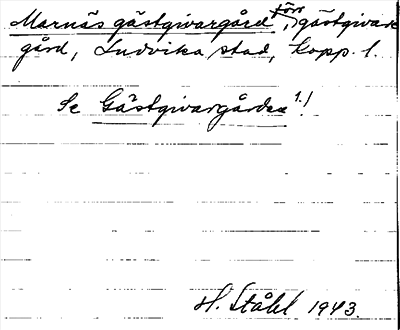 Marnäs gästgivargård, förr gästgivare
gård, Ludvika stad, Kopp. l.
Se Gästgivargården 1.)
H. Ståhl 1943.